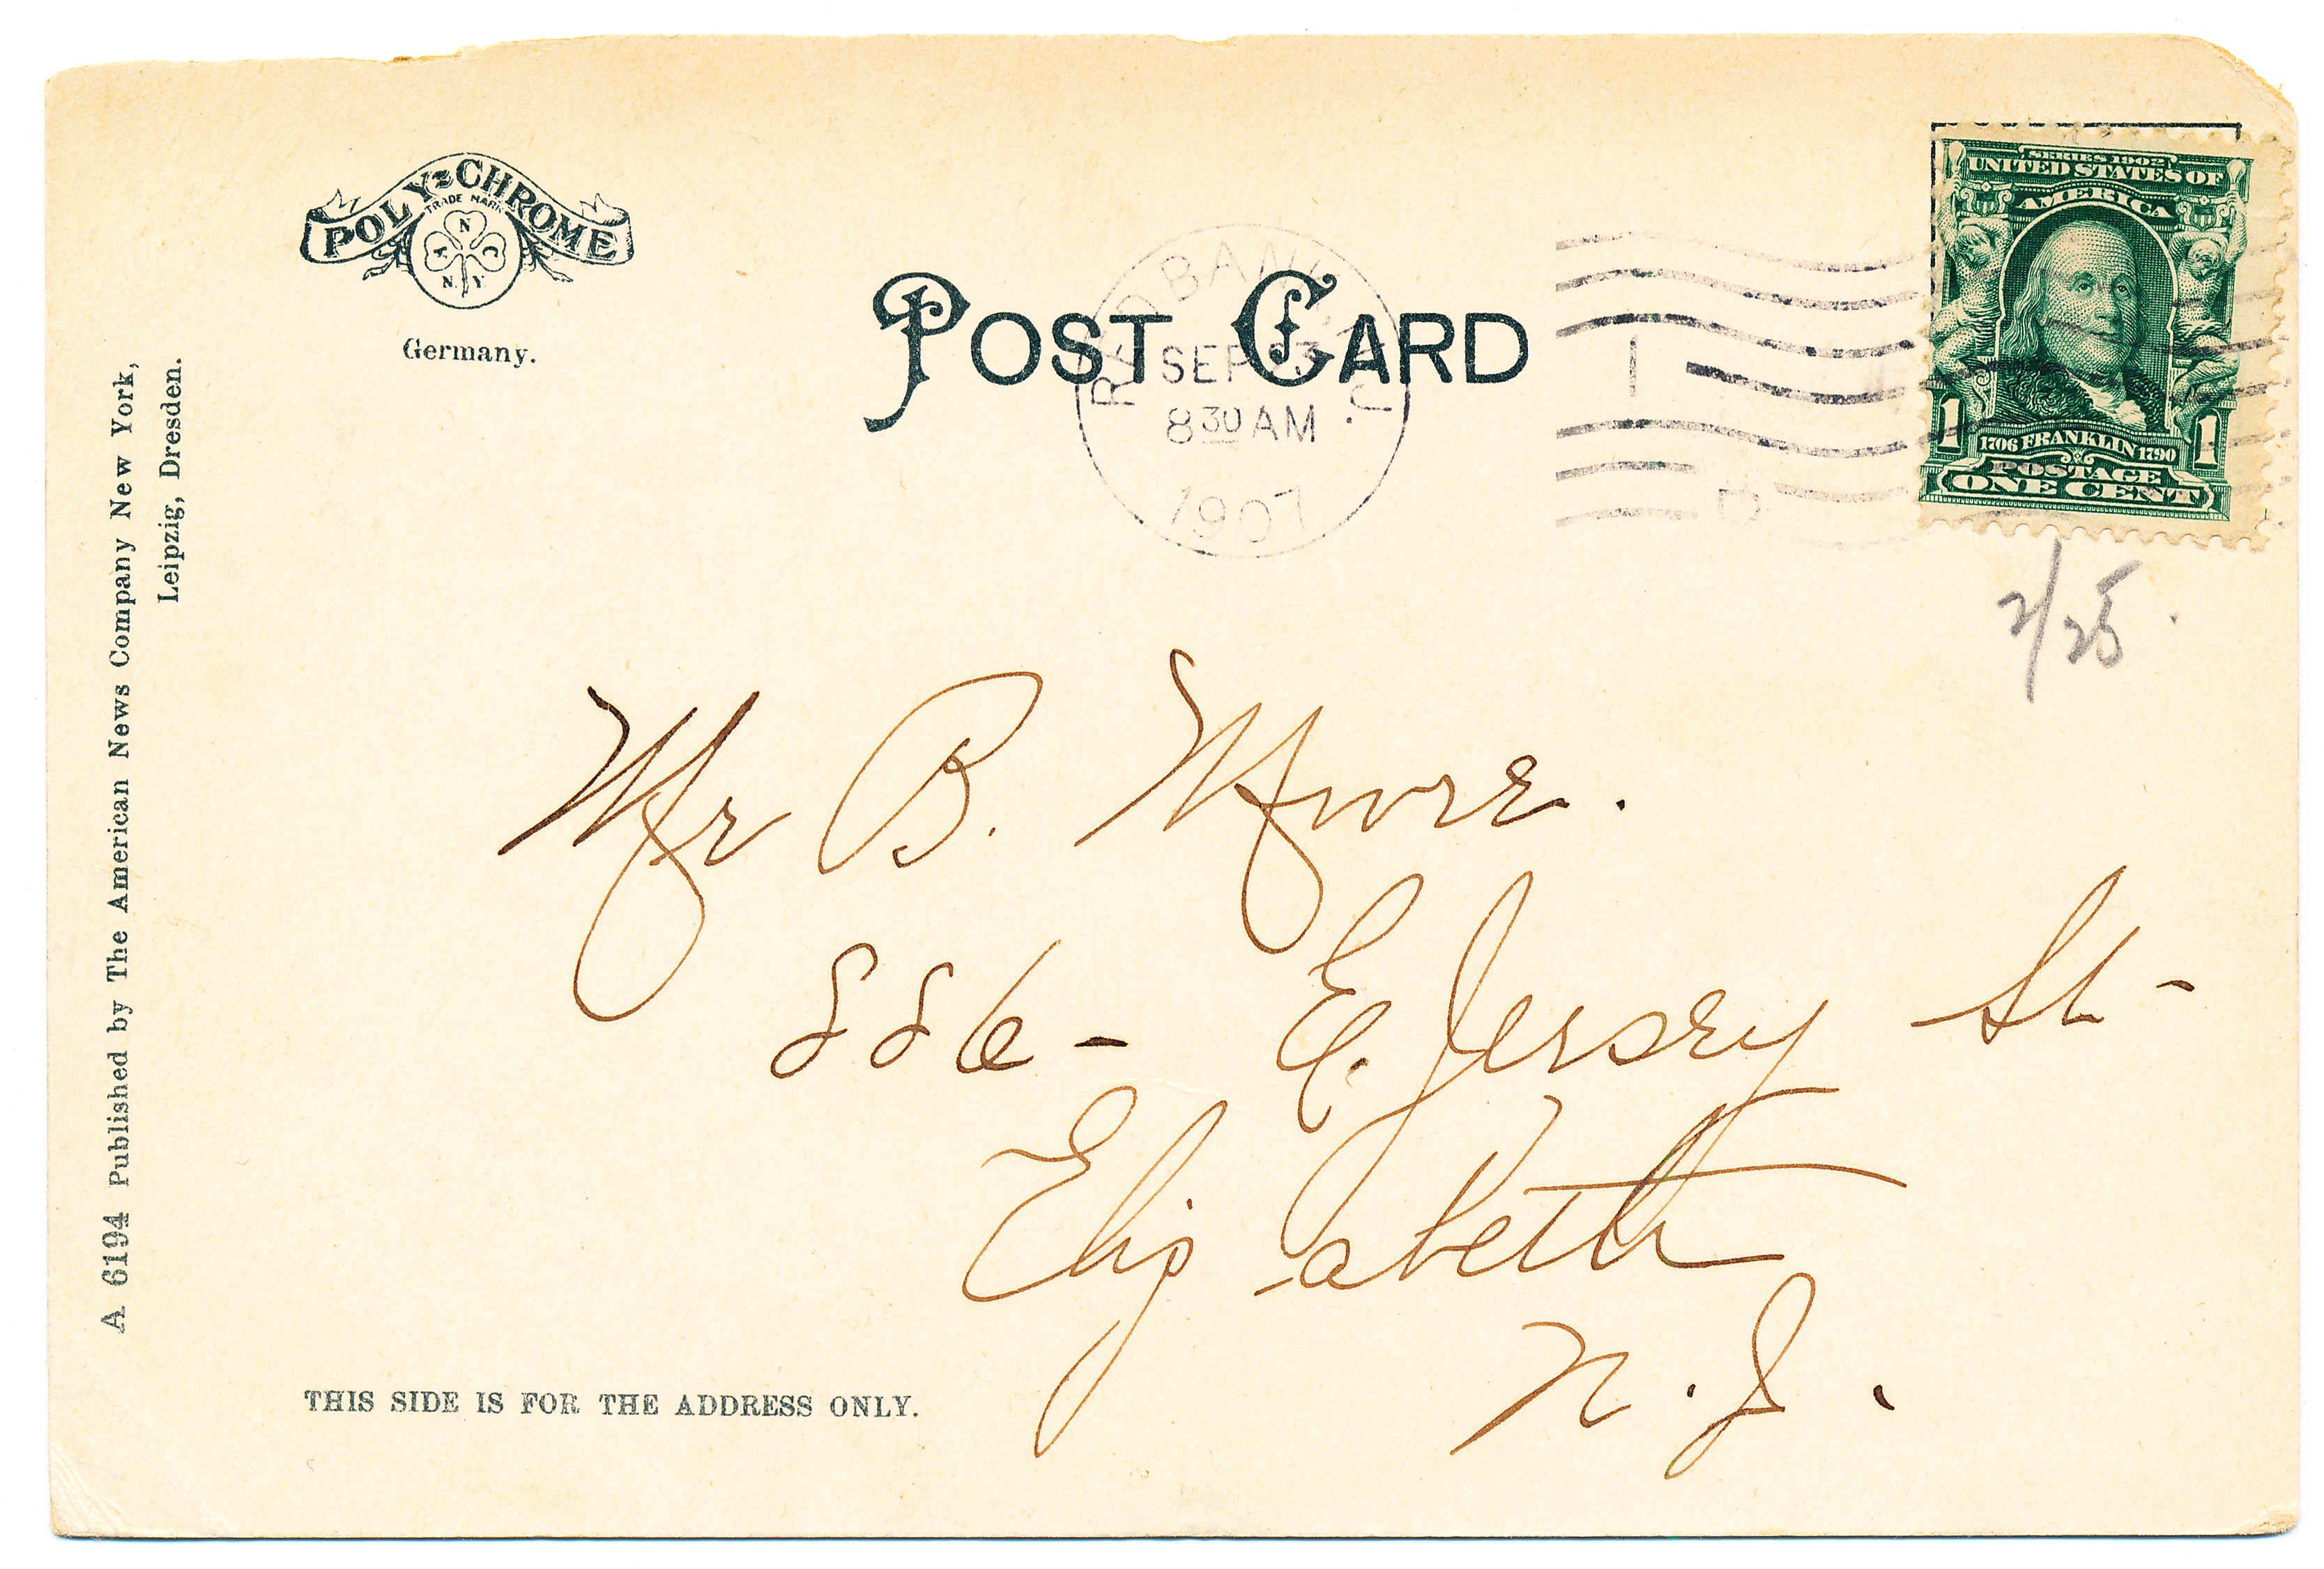 POLY-CHROME
TRADE MARK
A N C
N. Y.
Germany.
POST CARD
RED BANK, N.J.
SEP 23
8 30 AM
1907
SERIES 1902
UNITED STATES OF
AMERICA
1 1706 FRANKLIN 1790 1
POSTAGE
ONE CENT
2/25.
A 6194 Published by The American News Company New York,
Leipzig, Dresden.
Mr B.
886 - E. Jersey St-
Elizabeth
N. J.
THIS SIDE IS FOR THE ADDRESS ONLY.